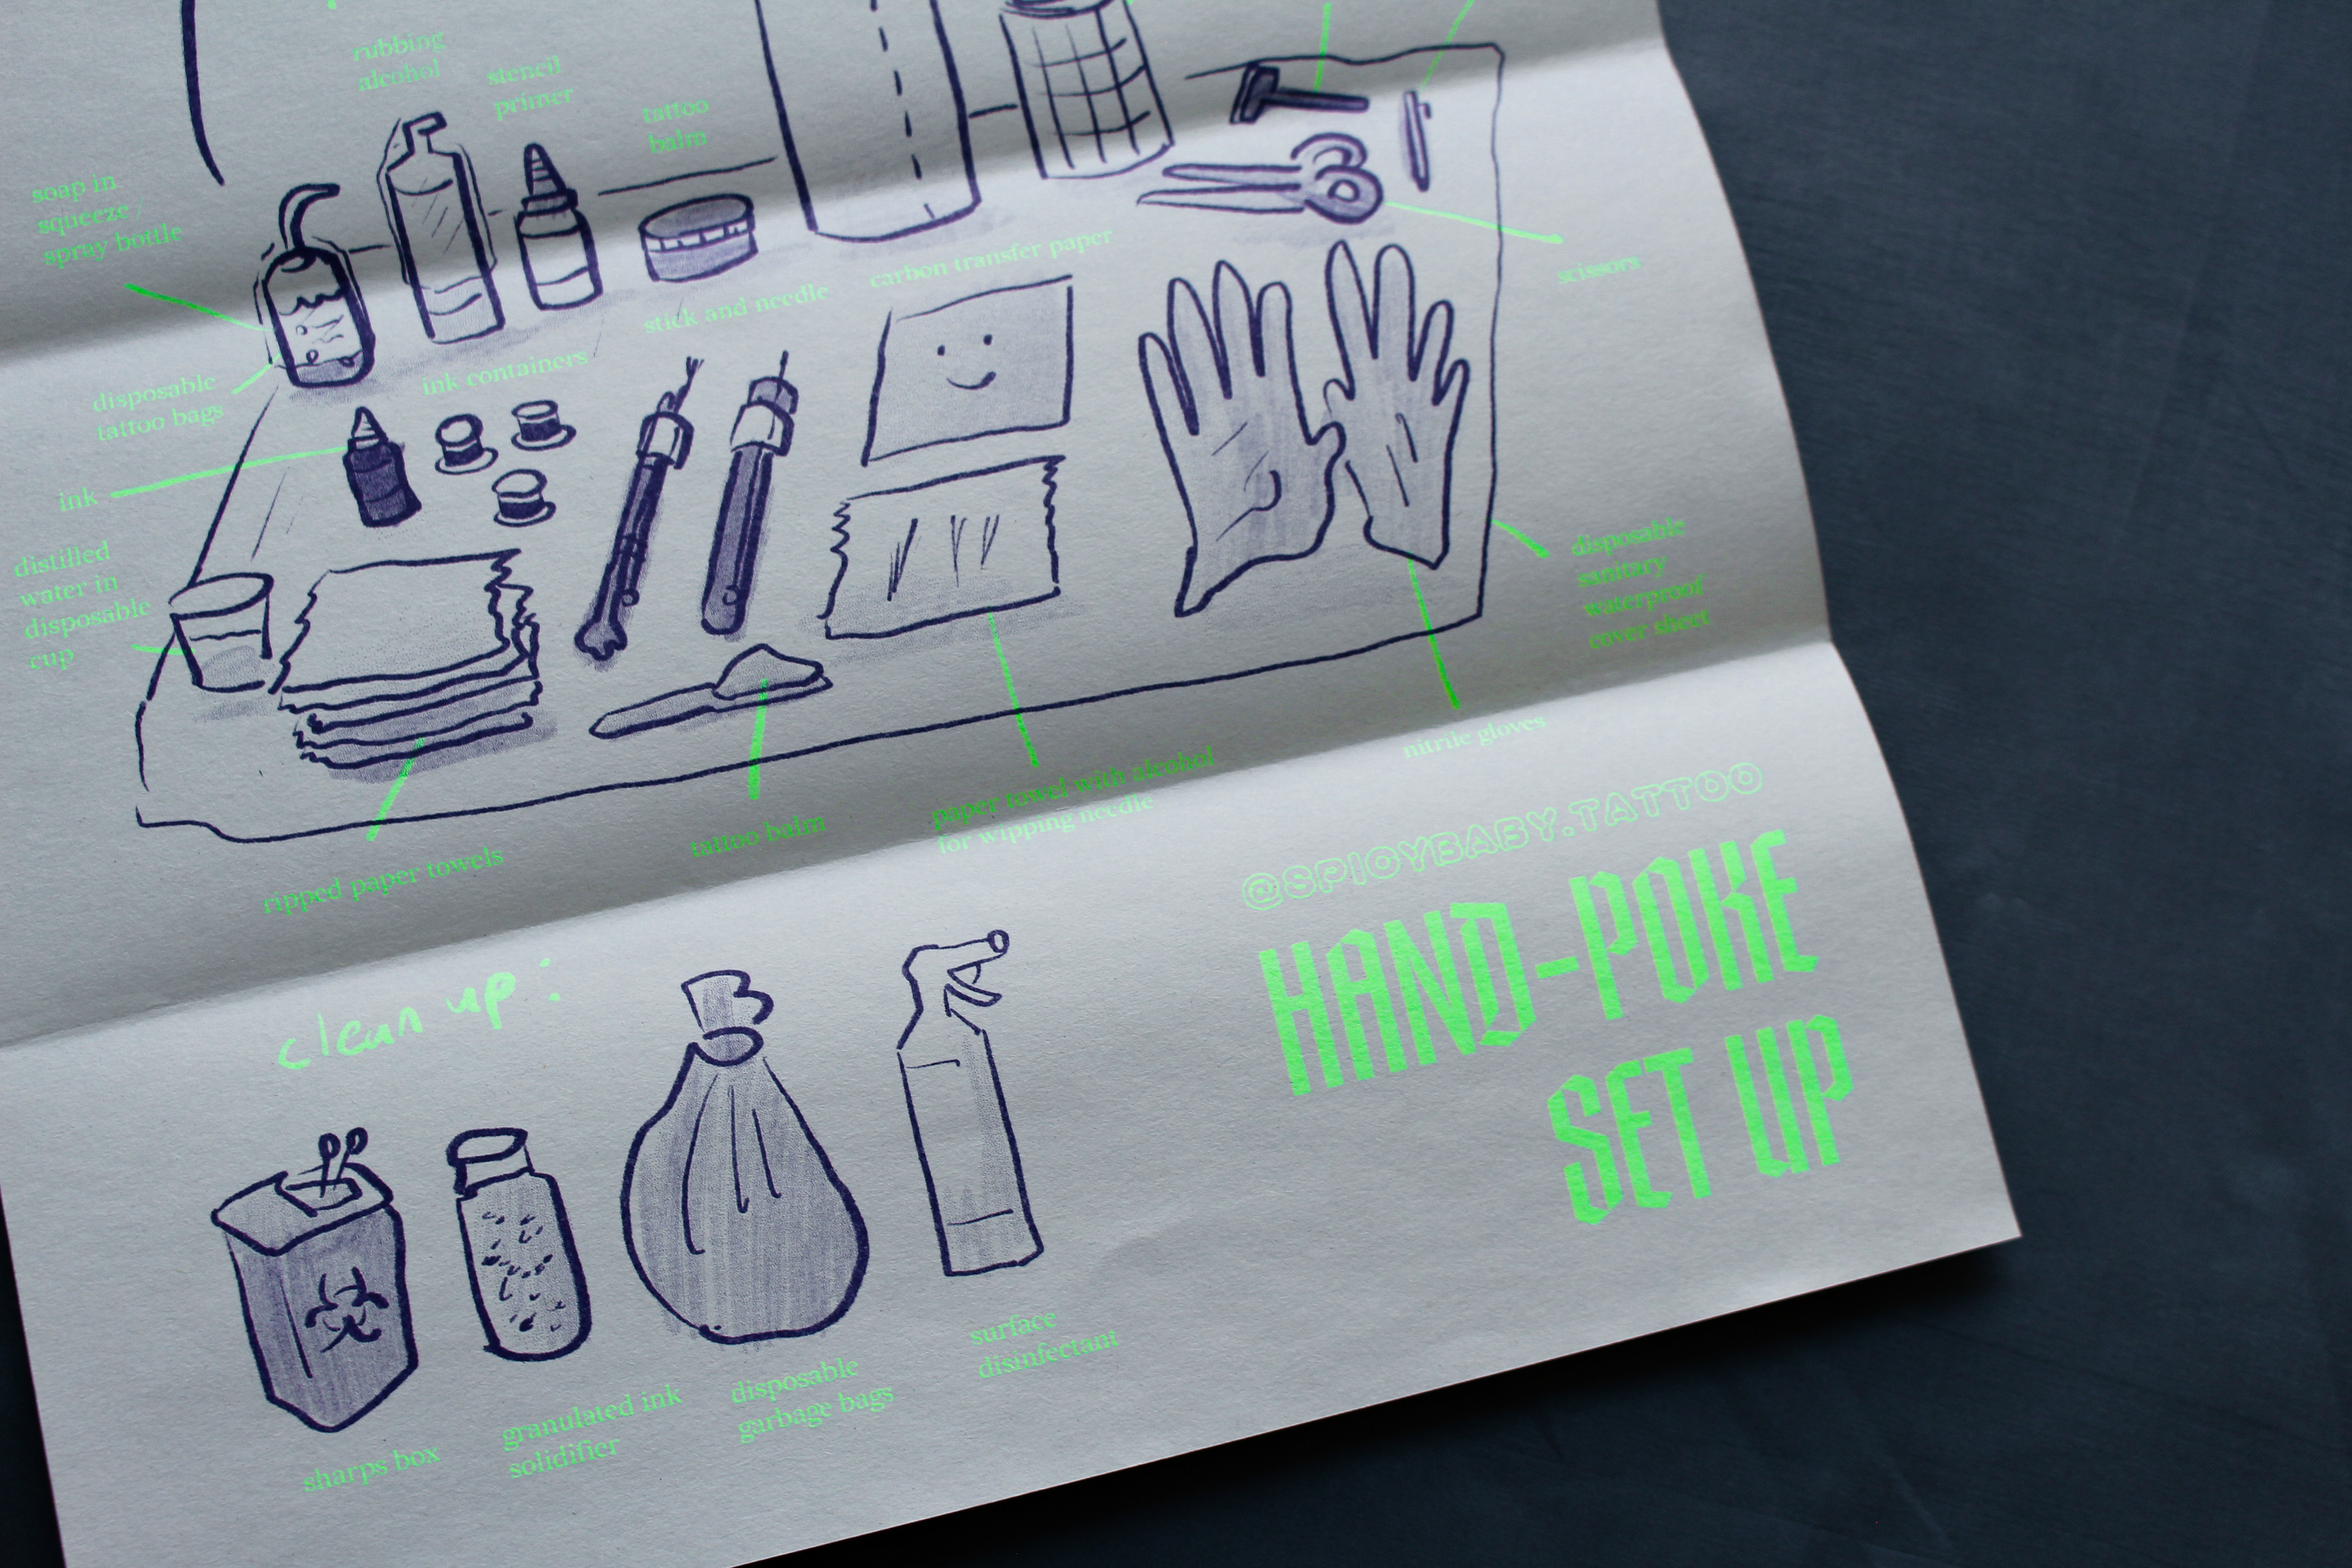 rubbing
alcohol
stencil
primer
tattoo
balm
soap in
squeeze /
spray bottle
carbon transfer paper
stick and needle
scissors
disposable
tattoo bags
ink containers
ink
distilled
water in
disposable
cup
disposable
sanitary
waterproof
cover sheet
nitrile gloves
paper towel with alcohol
for wipping needle
tattoo balm
ripped paper towels
@SPICYBABY.TATTOO
HAND-POKE
SET UP
clean up:
surface
disinfectant
disposable
garbage bags
granulated ink
solidifier
sharps box